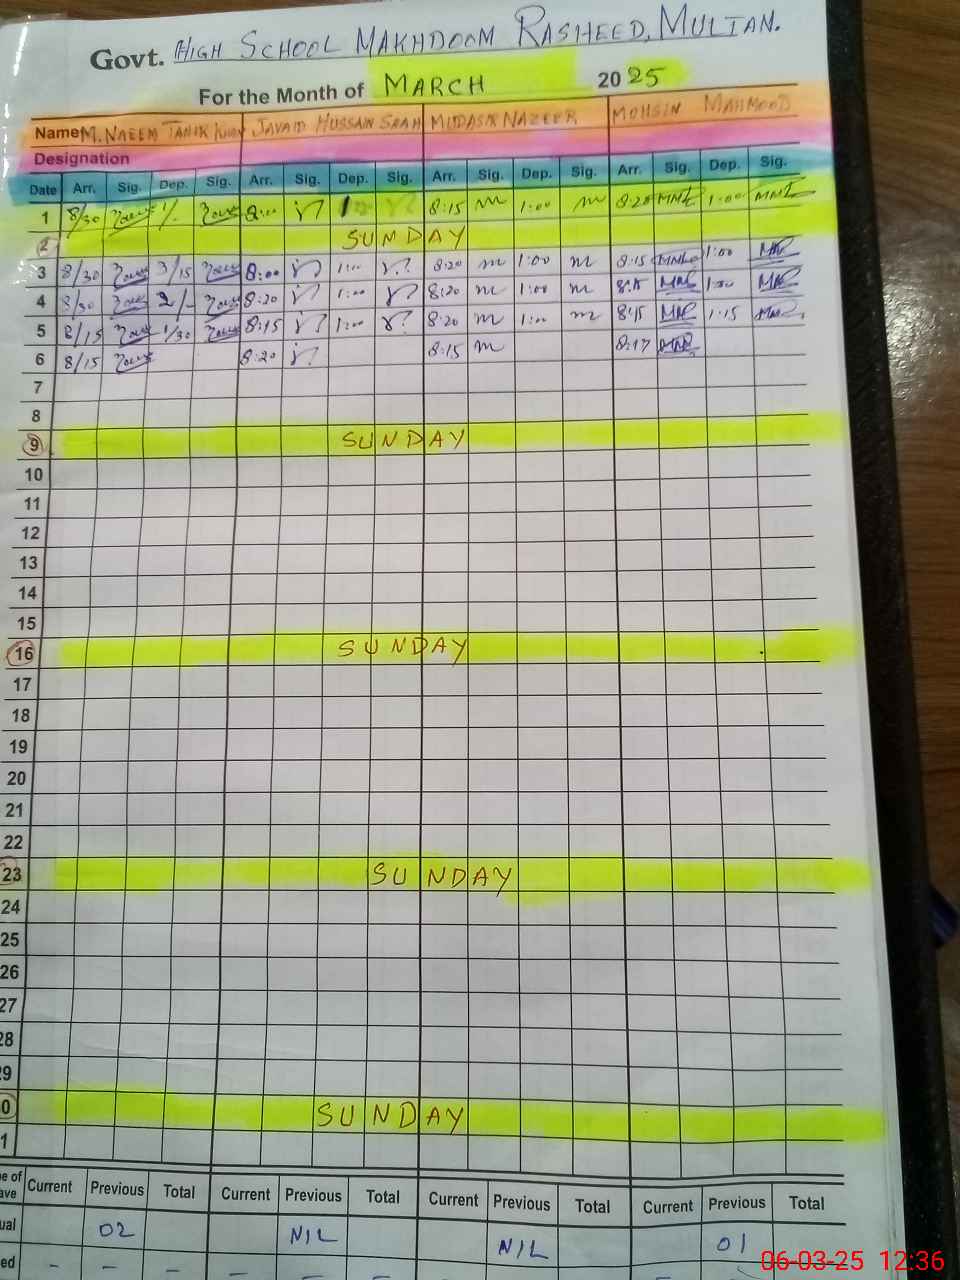 Govt. HIGH SCHOOL MAKHDOOM RASHEED, MULTAN.
For the Month of MARCH 2025
Name M. NAEEM TARIK KHAN JAVAID HUSSAIN SHAH MUDASIR NAZEER MOHSIN MAHMOOD
Designation
Date Arr. Sig. Dep. Sig. Arr. Sig. Dep. Sig. Arr. Sig. Dep. Sig. Arr. Sig. Dep. Sig.
1 8/30 1/- 8:00 1:00 8:15 m 1:00 m 8:20 1:00
2 SUNDAY
3 8/30 3/15 8:00 1:00 8:20 m 1:00 m 8:15 1:00
4 8/30 2/- 8:20 1:00 8:20 m 1:00 m 1:00
5 8/15 1/30 8:15 1:00 8:20 m 1:00 m 8:15 1:15
6 8/15 8:20 8:15 m 8:17
7
8
9 SUNDAY
10
11
12
13
14
15
16 SUNDAY
17
18
19
20
21
22
23 SUNDAY
24
25
26
27
28
29
0 SUNDAY
1
Current Previous Total Current Previous Total Current Previous Total Current Previous Total
ual 02 NIL NIL 01
ed - - - - - - -
06-03-25 12:36